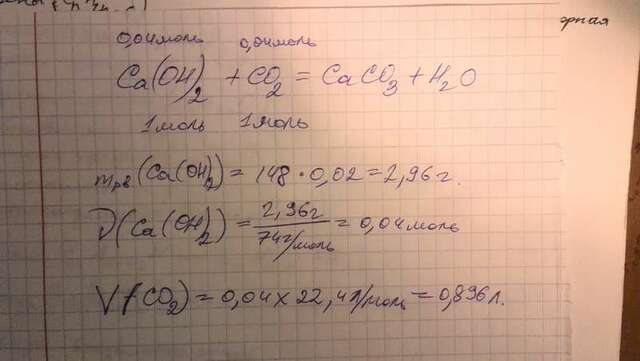 рная
0,04моль 0,04моль
Ca(OH)₂ + CO₂ = CaCO₃ + H₂O
1моль 1моль
mрв (Ca(OH)₂) = 148 · 0,02 = 2,96г.
ν(Ca(OH)₂) = 2,96г / 74г/моль = 0,04моль
V(CO₂) = 0,04 × 22,4л/моль = 0,896л.